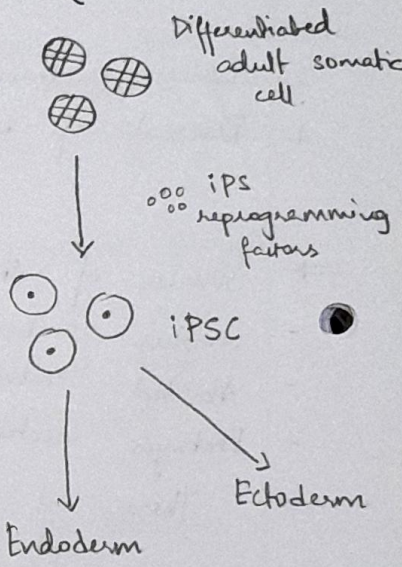 Differentiated
adult somatic
cell.
iPS
reprogramming
factors
iPSC
Ectoderm
Endoderm